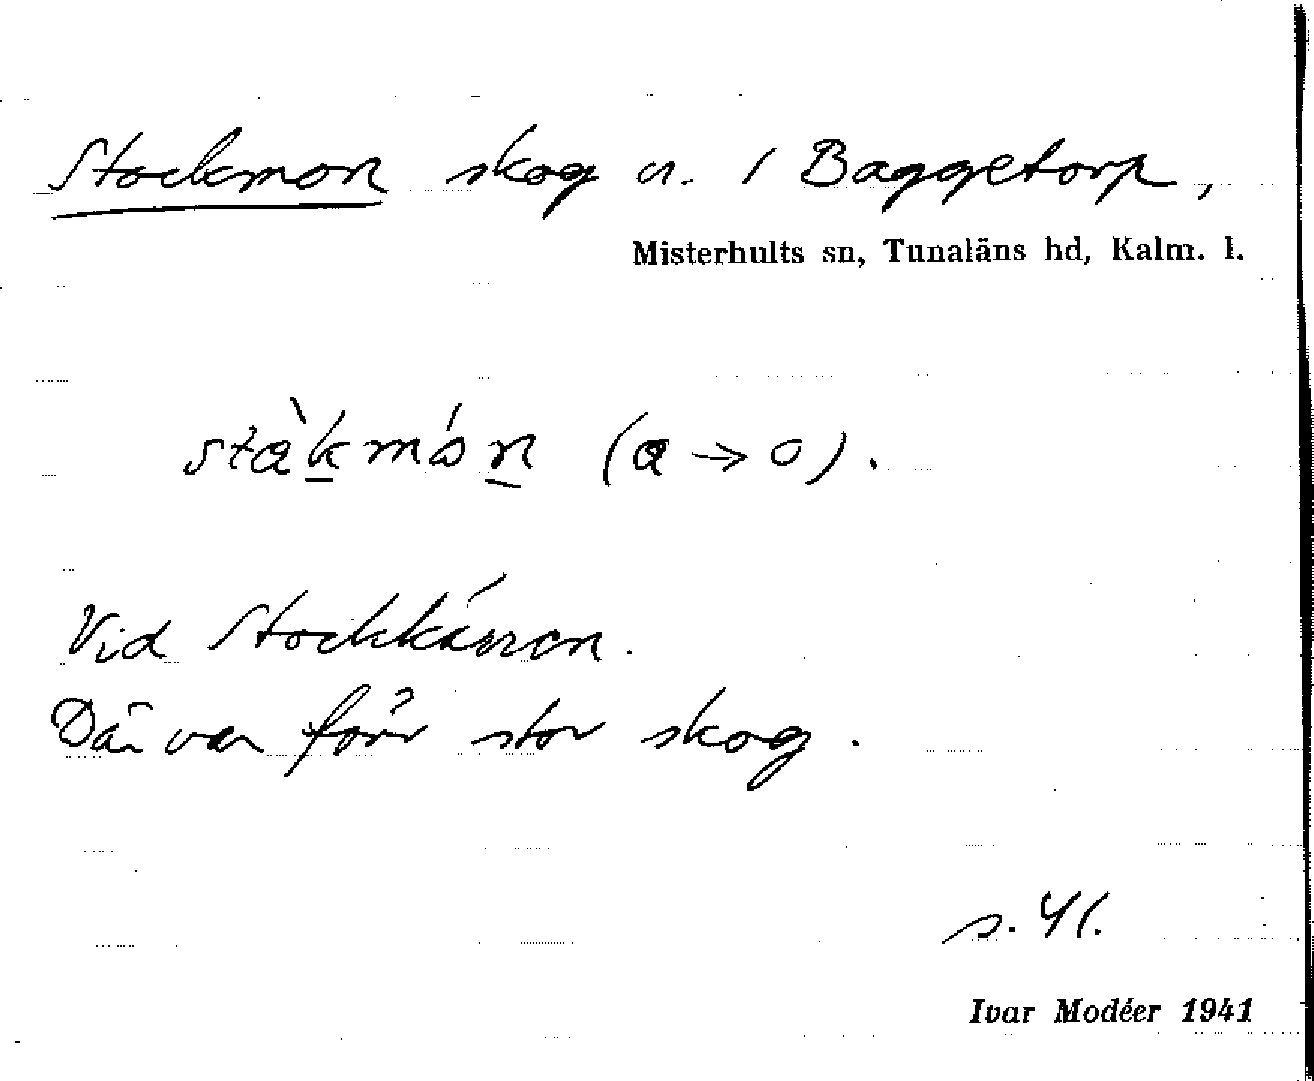 Stockmon skog n. 1 Baggetorp,
Misterhults sn, Tunaläns hd, Kalm. l.
stàkmón (a → o).
Vid Stockkärren.
Där var förr stor skog.
s. 41.
Ivar Modéer 1941